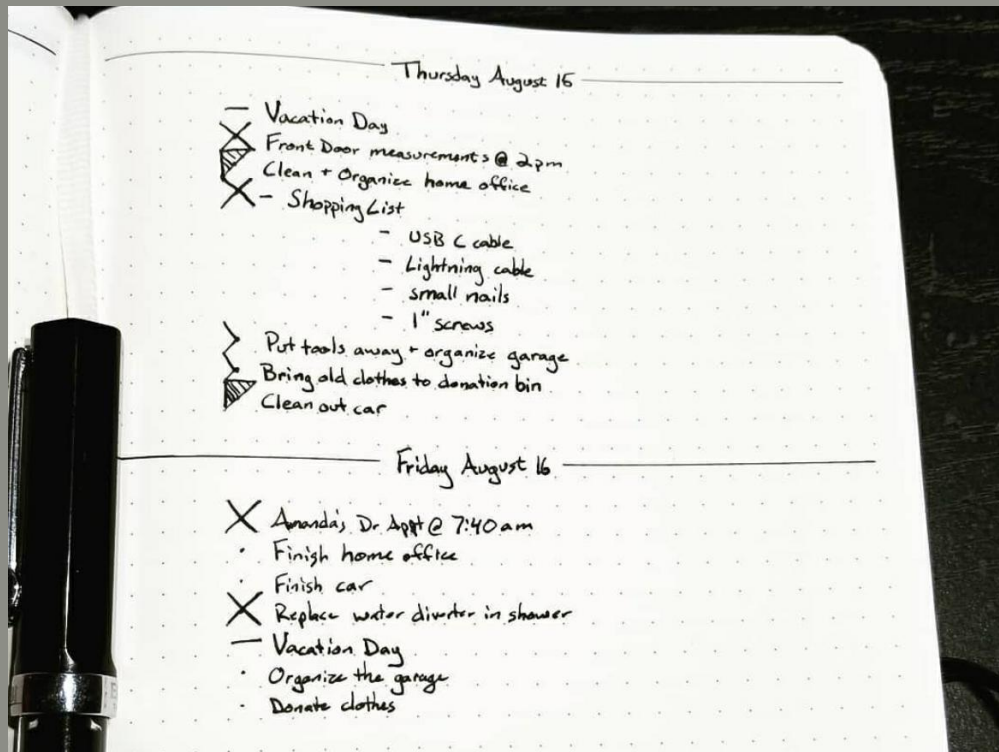 Thursday August 15
— Vacation Day
X Front Door measurements @ 2pm
Clean + Organize home office
X - Shopping List
- USB C cable
- Lightning cable
- small nails
- 1" screws
> Put tools away + organize garage
> Bring old clothes to donation bin
Clean out car
Friday August 16
X Amanda's Dr Appt @ 7:40 am
· Finish home office
· Finish car
X Replace water diverter in shower
— Vacation Day
· Organize the garage
· Donate clothes